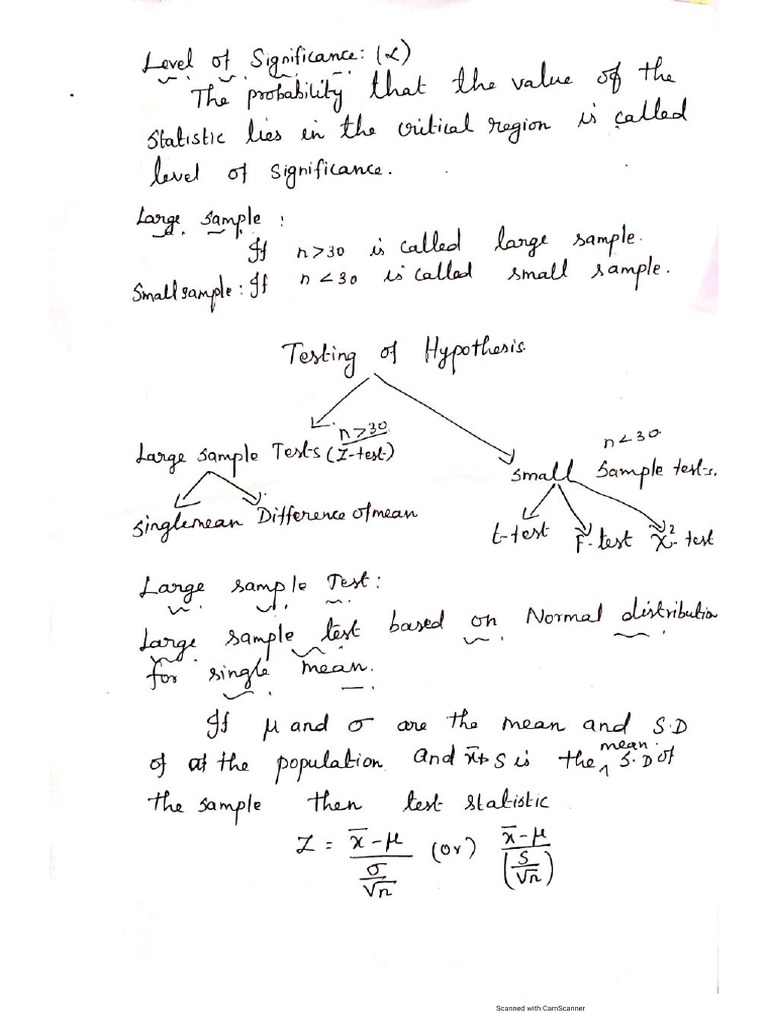 Level of Significance: (α)
The probability that the value of the
statistic lies in the critical region is called
level of significance.
Large sample :
If n>30 is called large sample.
Small sample : If n <30 is called small sample.
Testing of Hypothesis
n>30
Large sample Tests (Z-test)
n<30.
Small Sample tests.
Singlemean Difference of mean
t-test F-test χ²-test
Large sample Test:
Large sample test based on Normal distribution
for single mean.
If μ and σ are the mean and S.D
of the population and x̄ S is the mean S.D of
the sample then test statistic
Z = (x̄-μ)/(σ/√n) (or) (x̄-μ)/(S/√n)
Scanned with CamScanner